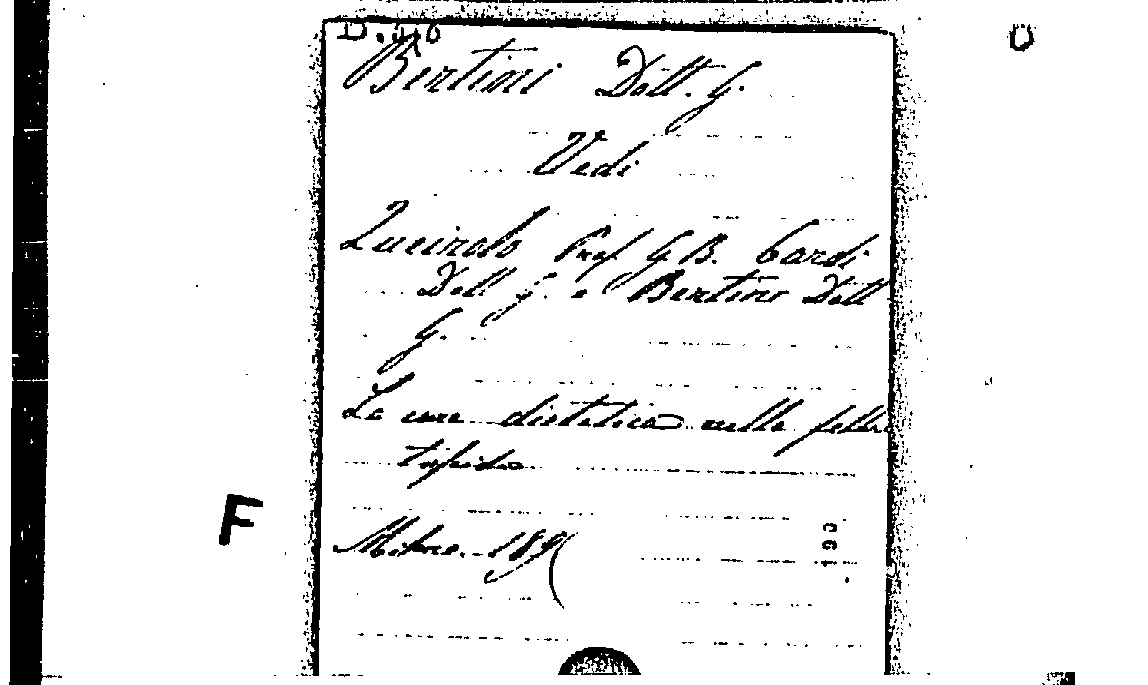 Bertini Dott. G.
Vedi
Queirolo Prof. G.B. Cardi
Dott G. e Bertini Dott
G.
La cura dietetica nelle febbri
tifoidi
Milano 189
F